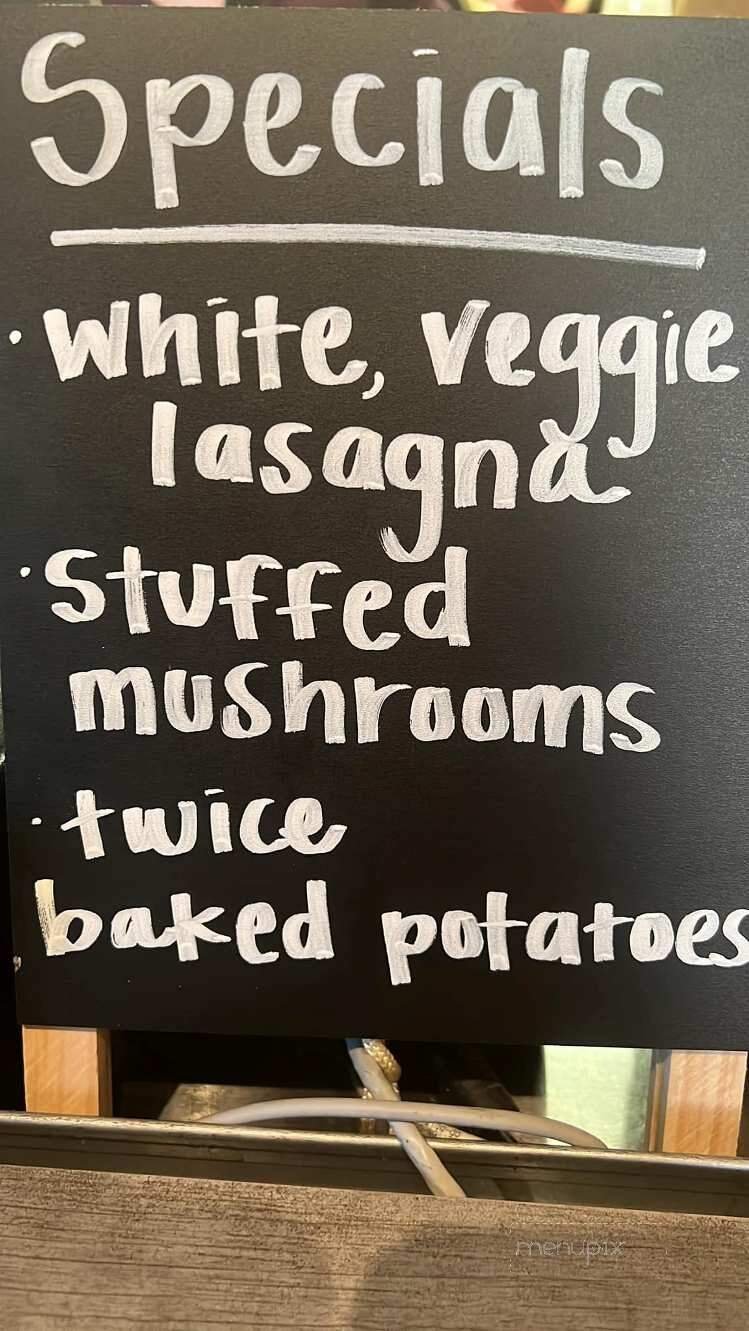 Specials
· White, veggie
lasagna
· Stuffed
mushrooms
· twice
baked potatoes
menupix